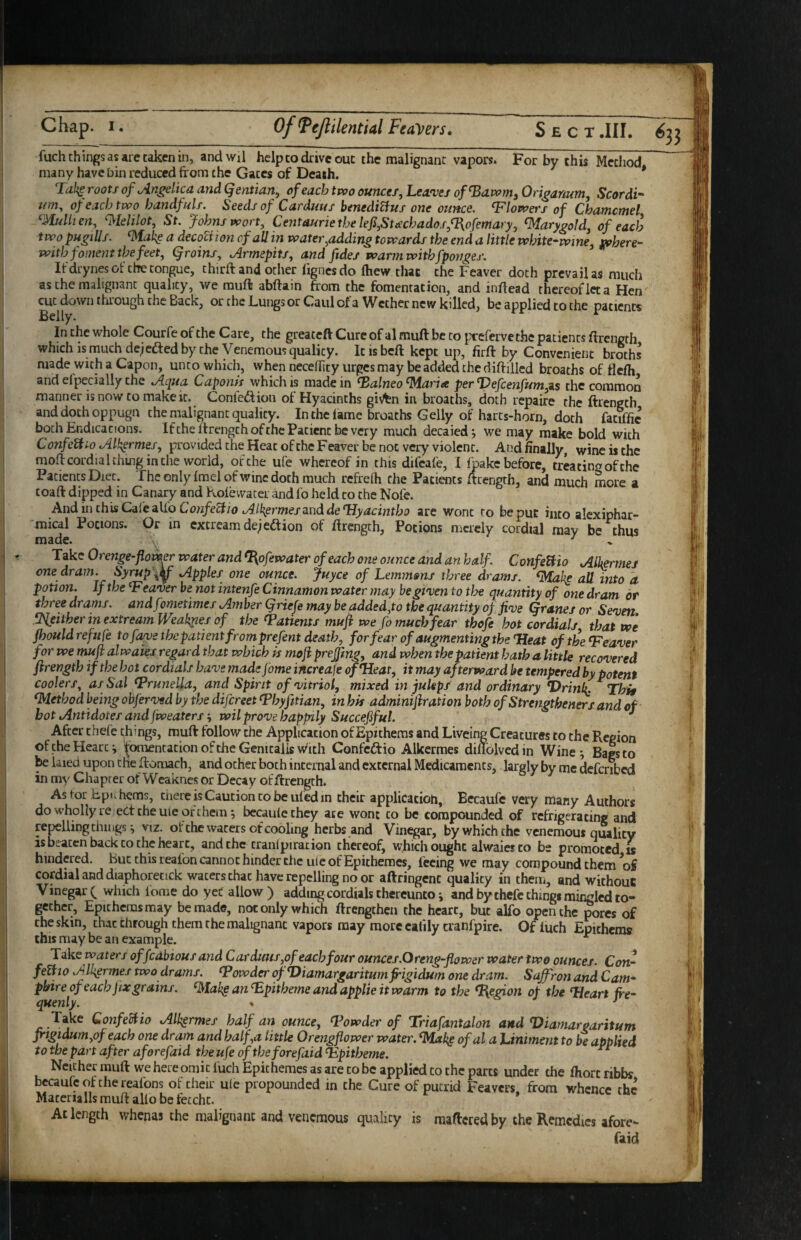 Chap. 1. Of Peſtilential Feavers. SECT.III. 633
ſuch things as are taken in, and wil help to drive out the malignant vapors. For by this Method,
many have bin reduced from the Gates of Death.
Take roots of Angelica and Gentian, of each two ounces, Leaves of Bawm, Origanum, Scordi-
um, of each two handfuls. Seeds of Carduus benedictus one ounce. Flowers of Chamomel,
Mullien, Melilot, St. Johns wort, Centaurie the leß, Stæchados, Roſemary, Marygold, of each
two pugills. Make a decoction of all in water, adding towards the end a little white-wine, where-
with foment the feet, Groins, Armepits, and ſides warm with ſponges.
If drynes of the tongue, thirſt and other ſignes do ſhew that the Feaver doth prevail as much
as the malignant quality, we muſt abſtain from the fomentation, and inſtead thereof let a Hen
cut down through the Back, or the Lungs or Caul of a Wether new killed, be applied to the patients
Belly.
In the whole Courſe of the Care, the greateſt Cure of al muſt be to preſerve the patients ſtrength,
which is much dejected by the Venemous quality. It is beſt kept up, firſt by Convenient broths
made with a Capon, unto which, when neceſſity urges may be added the diſtilled broaths of fleſh,
and eſpecially the Aqua Caponis which is made in Balneo Mariæ per Deſcenſum, as the common
manner is now to make it. Confection of Hyacinths given in broaths, doth repaire the ſtrength,
and doth oppugn the malignant quality. In the ſame broaths Gelly of harts-horn, doth ſatiſfie
both Endications. If the ſtrength of the Patient be very much decaied; we may make bold with
Confectio Alkermes, provided the Heat of the Feaver be not very violent. And finally, wine is the
moſt cordial thing in the world, of the uſe whereof in this diſeaſe, I ſpake before, treating of the
Patients Diet. The only ſmel of wine doth much refreſh the Patients ſtrength, and much more a
toaſt dipped in Canary and Roſewater and ſo held to the Noſe.
And in this Caſe alſo Confectio Alkermes and de Hyacintho are wont to be put into alexiphar-
mical Potions. Or in extream dejection of ſtrength, Potions merely cordial may be thus
made.
Take Orenge-flower water and Roſewater of each one ounce and an half. Confectio Alkermes
one dram. Syrup of Apples one ounce. Juyce of Lemmons three drams. Make all into a
potion. If the Feaver be not intenſe Cinnamon water may be given to the quantity of one dram or
three drams. and ſometimes Amber Grieſe may be added, to the quantity of five Granes or Seven.
Neither in extream Weaknes of the Patients muſt we ſo much fear thoſe hot cordials, that we
ſhould refuſe to ſave the patient from preſent death, for fear of augmenting the Heat of the Feaver
for we muſt alwaies regard that which is moſt preſſing, and when the patient hath a little recovered
ſtrength if the hot cordials have made ſome increaſe of Heat, it may afterward be tempered by potent
coolers, as Sal Prunella, and Spirit of vitriol, mixed in juleps and ordinary Drink. This
Method being obſerved by the diſcreet Phyſitian, in his adminiſtration both of Strengtheners and of
hot Antidotes and ſweaters; wil prove happily Succeßful.
After theſe things, muſt follow the Application of Epithems and Liveing Creatures to the Region
of the Heart; fomentation of the Genitalis with Confectio Alkermes diſſolved in Wine; Bags to
be laied upon the ſtomach, and other both internal and external Medicaments, largly by me deſcribed
in my Chapter of Weaknes or Decay of ſtrength.
As for Epithems, there is Caution to be uſed in their application, Becauſe very many Authors
do wholly reject the uſe of them; becauſe they are wont to be compounded of refrigerating and
repelling things; viz. of the waters of cooling herbs and Vinegar, by which the venemous quality
is beaten back to the heart, and the tranſpiration thereof, which ought alwaies to be promoted, is
hindered. But this reaſon cannot hinder the uſe of Epithemes, ſeeing we may compound them of
cordial and diaphoretick waters that have repelling no or aſtringent quality in them, and without
Vinegar ( which ſome do yet allow ) adding cordials thereunto; and by theſe things mingled to-
gether, Epithems may be made, not only which ſtrengthen the heart, but alſo open the pores of
the skin, that through them the malignant vapors may more eaſily tranſpire. Of ſuch Epithems
this may be an example.
Take waters of ſcabious and Carduus, of each four ounces. Oreng-flower water two ounces. Con-
fectio Alkermes two drams. Powder of Diamargaritum frigidum one dram. Saffron and Cam-
phire of each ſix grains. Make an Epitheme and applie it warm to the Region of the Heart fre-
quenly.
Take Confectio Alkermes half an ounce, Powder of Triaſantalon and Diamargaritum
frigidum, of each one dram and half, a little Orengflower water. Make of al a Liniment to be applied
to the part after aforeſaid the uſe of the foreſaid Epitheme.
Neither muſt we here omit ſuch Epithemes as are to be applied to the parts under the ſhort ribbs,
becauſe of the reaſons of their uſe propounded in the Cure of putrid Feavers, from whence the
Materialls muſt alſo be fetcht.
At length whenas the malignant and venemous quality is maſtered by the Remedies afore-
ſaid